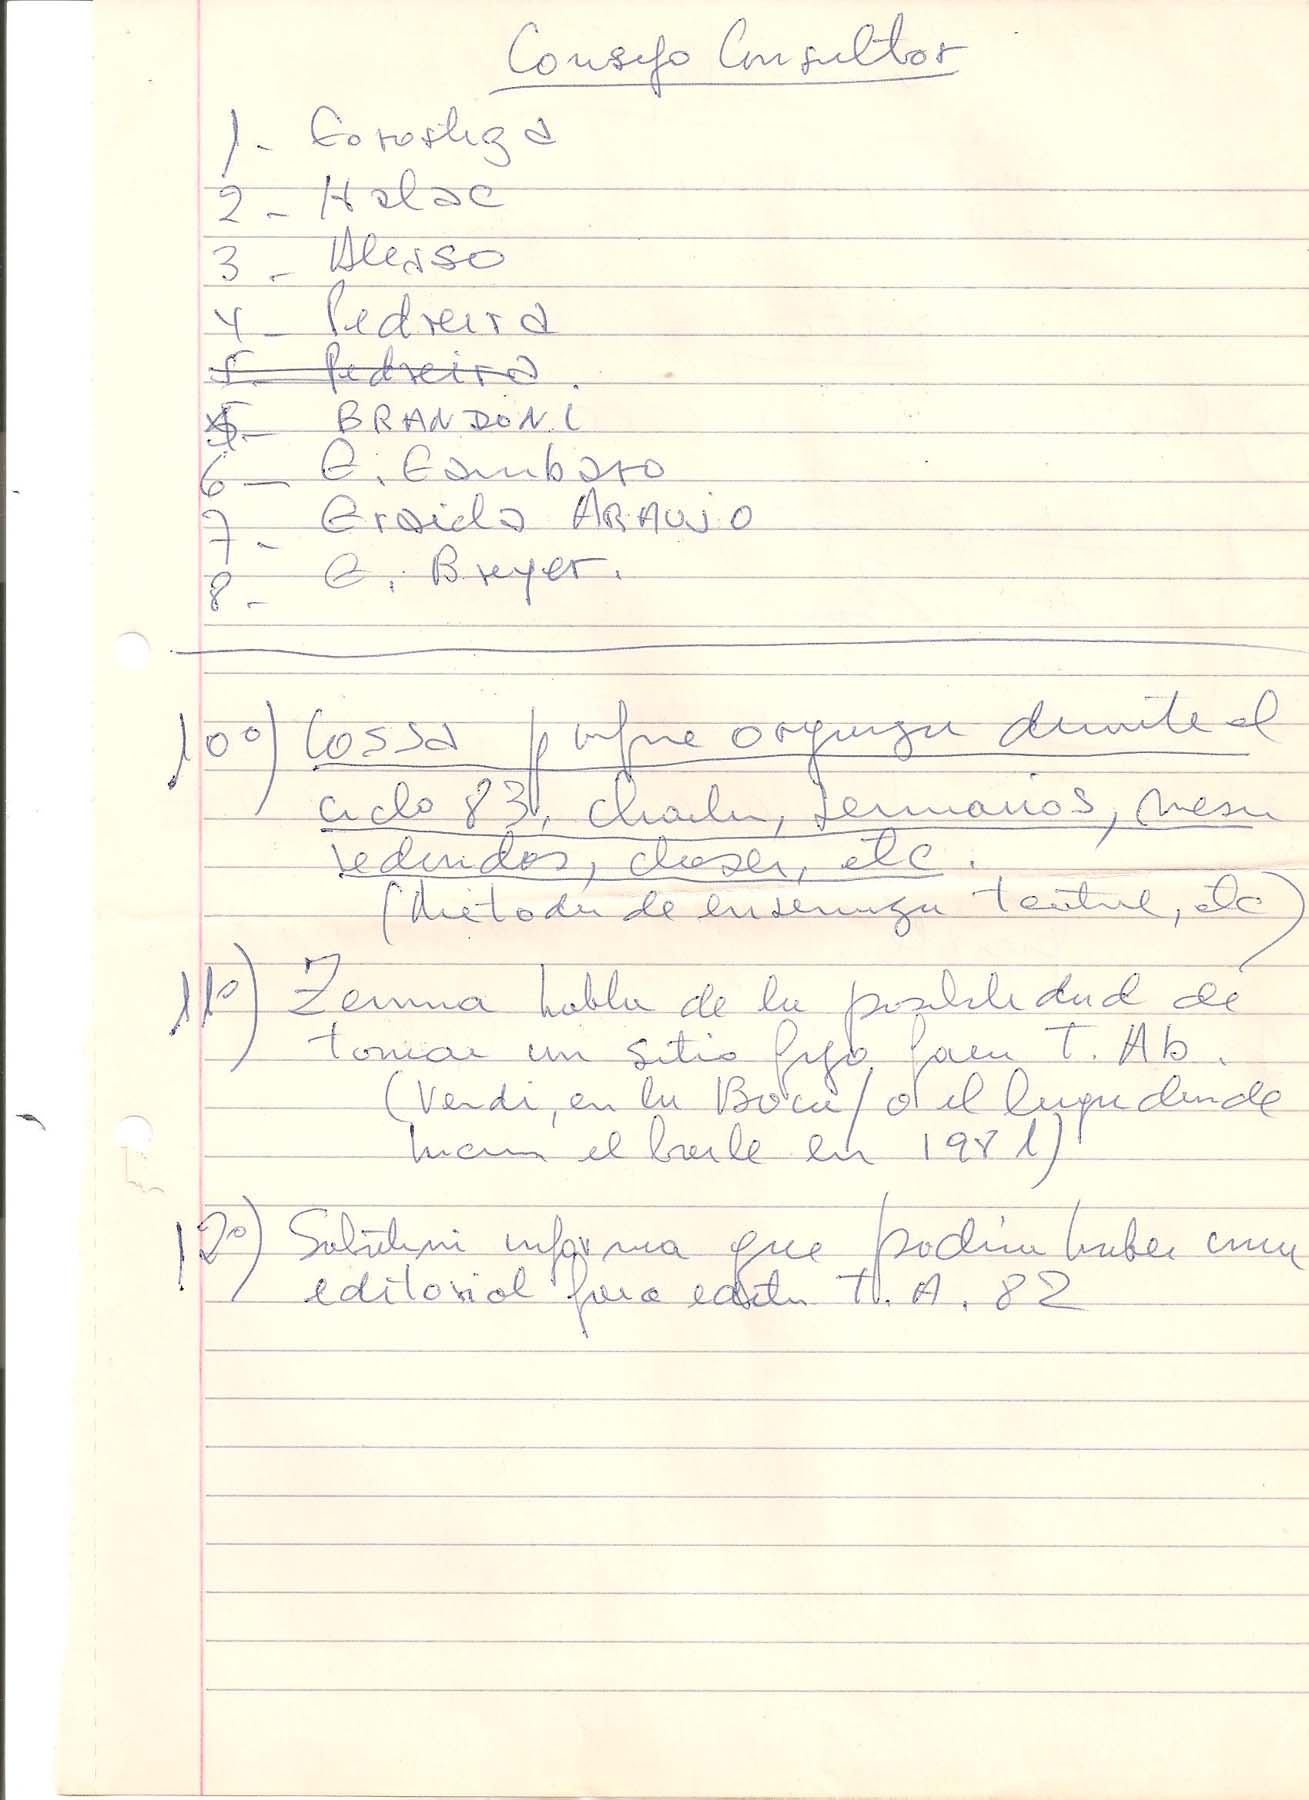 Consejo Consultor
1- Gorostiza
2- Halac
3- Alezzo
4- Pedreira
5- Pedreira.
5- BRANDONI
6- G. Gambaro
7- Graciela ARAUJO
8- G. Breyer.
10º) Cossa p que organizar durante el
ciclo 83, charlas, seminarios, mesas
redondas, clases, etc.
(Métodos de enseñanza teatral, etc)
11º) Zemma habla de la posibilidad de
tomar un sitio fijo para T. Ab.
(Verdi, en la Boca / o el lugar donde
hacían el baile en 1981)
12º) informa que podría haber una
editorial para editar T. A. 82